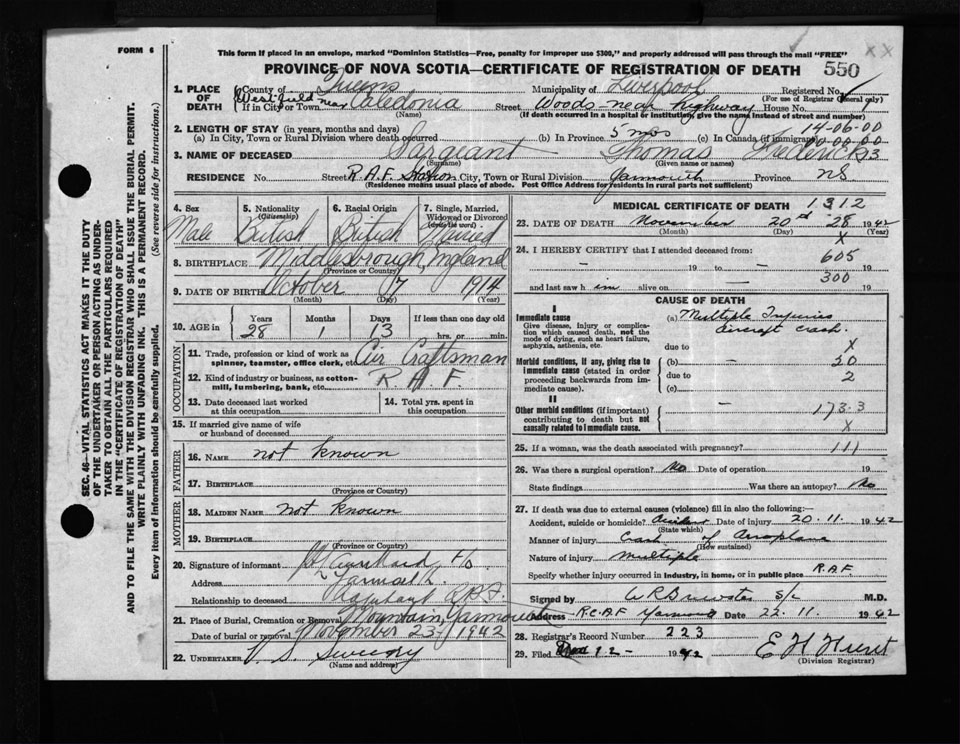 FORM 6
This form if placed in an envelope, marked "Dominion Statistics—Free, penalty for improper use $300," and properly addressed will pass through the mail "FREE"
PROVINCE OF NOVA SCOTIA—CERTIFICATE OF REGISTRATION OF DEATH 550
1. PLACE OF DEATH County of Queens Municipality of Liverpool Registered No.
(For use of Registrar General only)
If in City or Town Westfield near Caledonia Street Woods near highway House No.
(Name) (If death occurred in a hospital or institution, give the name instead of street and number)
2. LENGTH OF STAY (in years, months and days)
(a) In City, Town or Rural Division where death occurred (b) In Province 5 mos (c) In Canada (if immigrant) 14-06-00
00-00-00
3. NAME OF DECEASED Sargeant Thomas Frederick
(Surname) (Given name or names)
RESIDENCE No. Street R.A.F. Station City, Town or Rural Division Yarmouth Province NS
(Residence means usual place of abode. Post Office Address for residents in rural parts not sufficient)
4. Sex Male
5. Nationality (Citizenship) British
6. Racial Origin British
7. Single, Married, Widowed or Divorced (write the word)
8. BIRTHPLACE Middlesbrough, England
(Province or Country)
9. DATE OF BIRTH October 7 1914
(Month) (Day) (Year)
10. AGE in Years Months Days If less than one day old
28 1 13 hrs. or min.
OCCUPATION
11. Trade, profession or kind of work as spinner, teamster, office clerk, etc. Air Craftsman
12. Kind of industry or business, as cotton-mill, lumbering, bank, etc. R. A. F.
13. Date deceased last worked at this occupation
14. Total yrs. spent in this occupation
15. If married give name of wife or husband of deceased
FATHER
16. NAME not known
17. BIRTHPLACE
(Province or Country)
MOTHER
18. MAIDEN NAME not known
19. BIRTHPLACE
(Province or Country)
20. Signature of informant
Address Yarmouth
Relationship to deceased Adjutant R.A.F.
21. Place of Burial, Cremation or Removal Mountain, Yarmouth
Date of burial or removal November 23 1942
22. UNDERTAKER V. S. Sweeny
(Name and address)
MEDICAL CERTIFICATE OF DEATH 1312
23. DATE OF DEATH November 20 28 1942
(Month) (Day) (Year)
X
24. I HEREBY CERTIFY that I attended deceased from:
605
— 19 to — 19
300
and last saw him alive on — 19
CAUSE OF DEATH
I
Immediate cause
Give disease, injury or complication which caused death, not the mode of dying, such as heart failure, asphyxia, asthenia, etc.
(a) Multiple Injuries
aircraft crash.
due to X
Morbid conditions, if any, giving rise to immediate cause (stated in order proceeding backwards from immediate cause).
(b) — 50
due to 2
(c)
II
Other morbid conditions (if important) contributing to death but not causally related to immediate cause.
—
173.3
X
25. If a woman, was the death associated with pregnancy? 111
26. Was there a surgical operation? No Date of operation — 19
State findings Was there an autopsy? No
27. If death was due to external causes (violence) fill in also the following:
Accident, suicide or homicide? Accident Date of injury 20.11. 1942
(State which)
Manner of injury Crash of Aeroplane
(How sustained)
Nature of injury Multiple
Specify whether injury occurred in industry, in home, or in public place R.A.F.
Signed by M.D.
Address R.C.A.F Yarmouth Date 22.11. 1942
28. Registrar's Record Number 223
29. Filed 12- 1942 E H Hunt
(Division Registrar)
SEC. 46—VITAL STATISTICS ACT MAKES IT THE DUTY
OF THE UNDERTAKER OR PERSON ACTING AS UNDERTAKER TO OBTAIN ALL THE PARTICULARS REQUIRED
IN THE "CERTIFICATE OF REGISTRATION OF DEATH"
AND TO FILE THE SAME WITH THE DIVISION REGISTRAR WHO SHALL ISSUE THE BURIAL PERMIT.
WRITE PLAINLY WITH UNFADING INK. THIS IS A PERMANENT RECORD.
Every item of information should be carefully supplied. (See reverse side for instructions.)